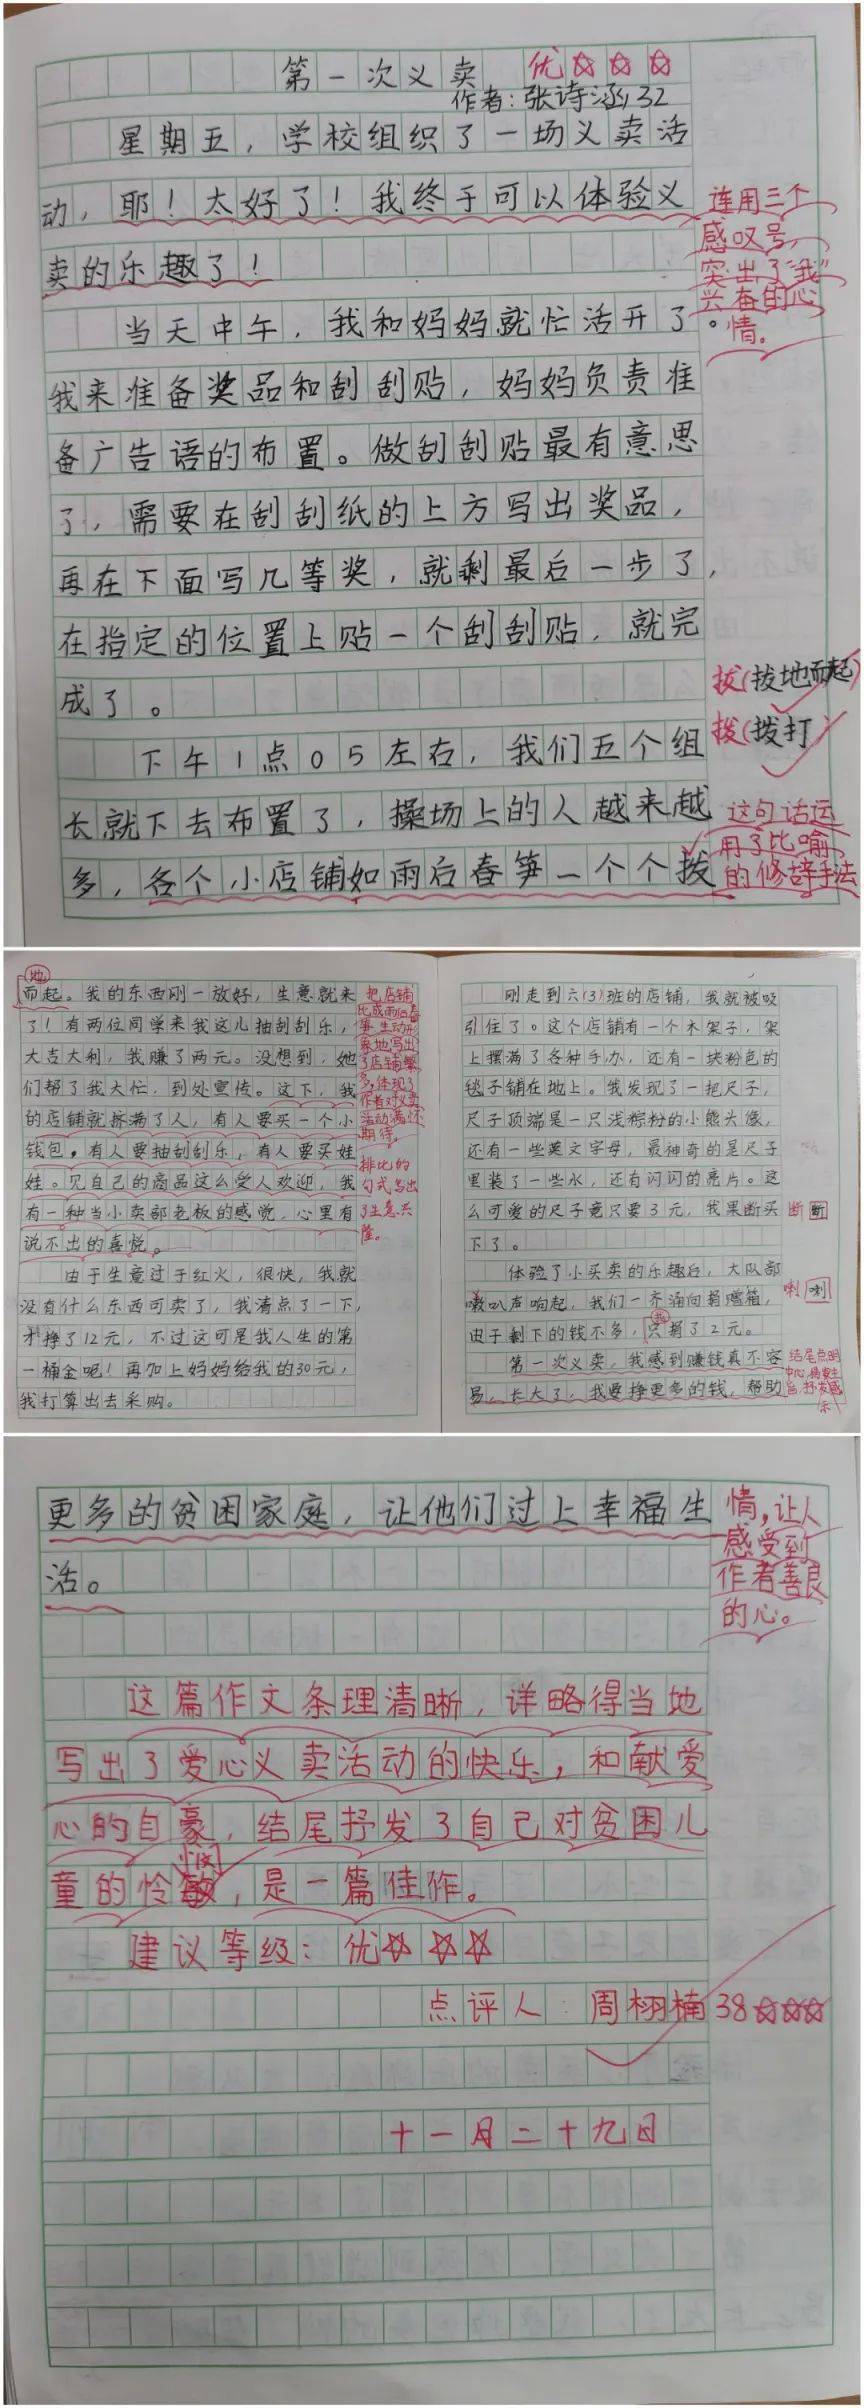 第一次义卖 优☆☆☆
作者:张诗涵32
星期五，学校组织了一场义卖活
动，耶！太好了！我终于可以体验义
卖的乐趣了！
连用三个
感叹号，
突出了“我”
兴奋的心
情。
当天中午，我和妈妈就忙活开了。
我来准备奖品和刮刮贴，妈妈负责准
备广告语的布置。做刮刮贴最有意思
了，需要在刮刮纸的上方写出奖品，
再在下面写几等奖，就剩最后一步了，
在指定的位置上贴一个刮刮贴，就完
成了。
拔(拔地而起)
拨(拨打)
下午1点05左右，我们五个组
长就下去布置了，操场上的人越来越
多，各个小店铺如雨后春笋一个个拔
这句话运
用了比喻
的修辞手法
地
而起。我的东西刚一放好，生意就来
了！有两位同学来我这儿抽刮刮乐，
大吉大利，我赚了两元。没想到，她
们帮了我大忙，到处宣传。这下，我
的店铺就挤满了人，有人要买一个小
钱包，有人要抽刮刮乐，有人要买娃
娃。见自己的商品这么受人欢迎，我
有一种当小卖部老板的感觉，心里有
说不出的喜悦。
把店铺
比成雨后春
笋，生动形
象地写出
了店铺繁
多，体现了
作者对义卖
活动满怀
期待。
排比的
句式写出
了生意兴
隆。
由于生意过于红火，很快，我就
没有什么东西可卖了，我清点了一下，
才挣了12元，不过这可是我人生的第
一桶金呢！再加上妈妈给我的30元，
我打算出去采购。
刚走到六(3)班的店铺，我就被吸
引住了。这个店铺有一个木架子，架
上摆满了各种手办，还有一块粉色的
毯子铺在地上。我发现了一把尺子，
尺子顶端是一只浅棕粉的小熊头像，
还有一些英文字母，最神奇的是尺子
里装了一些水，还有闪闪的亮片。这
么可爱的尺子竟只要3元，我果断买
下了。
断 断
体验了小买卖的乐趣后，大队部
喇叭声响起，我们一齐涌向捐赠箱，
由于剩下的钱不多，只捐了2元。
喇 喇
我
第一次义卖，我感到赚钱真不容
易，长大了，我要挣更多的钱，帮助
结尾点明
更多的贫困家庭，让他们过上幸福生
活。
情，让人
感受到
作者善良
的心。
这篇作文条理清晰，详略得当地
写出了爱心义卖活动的快乐，和献爱
心的自豪，结尾抒发了自己对贫困儿
童的怜敏，是一篇佳作。
悯
建议等级：优☆☆☆
点评人：周栩楠38☆☆☆
十一月二十九日